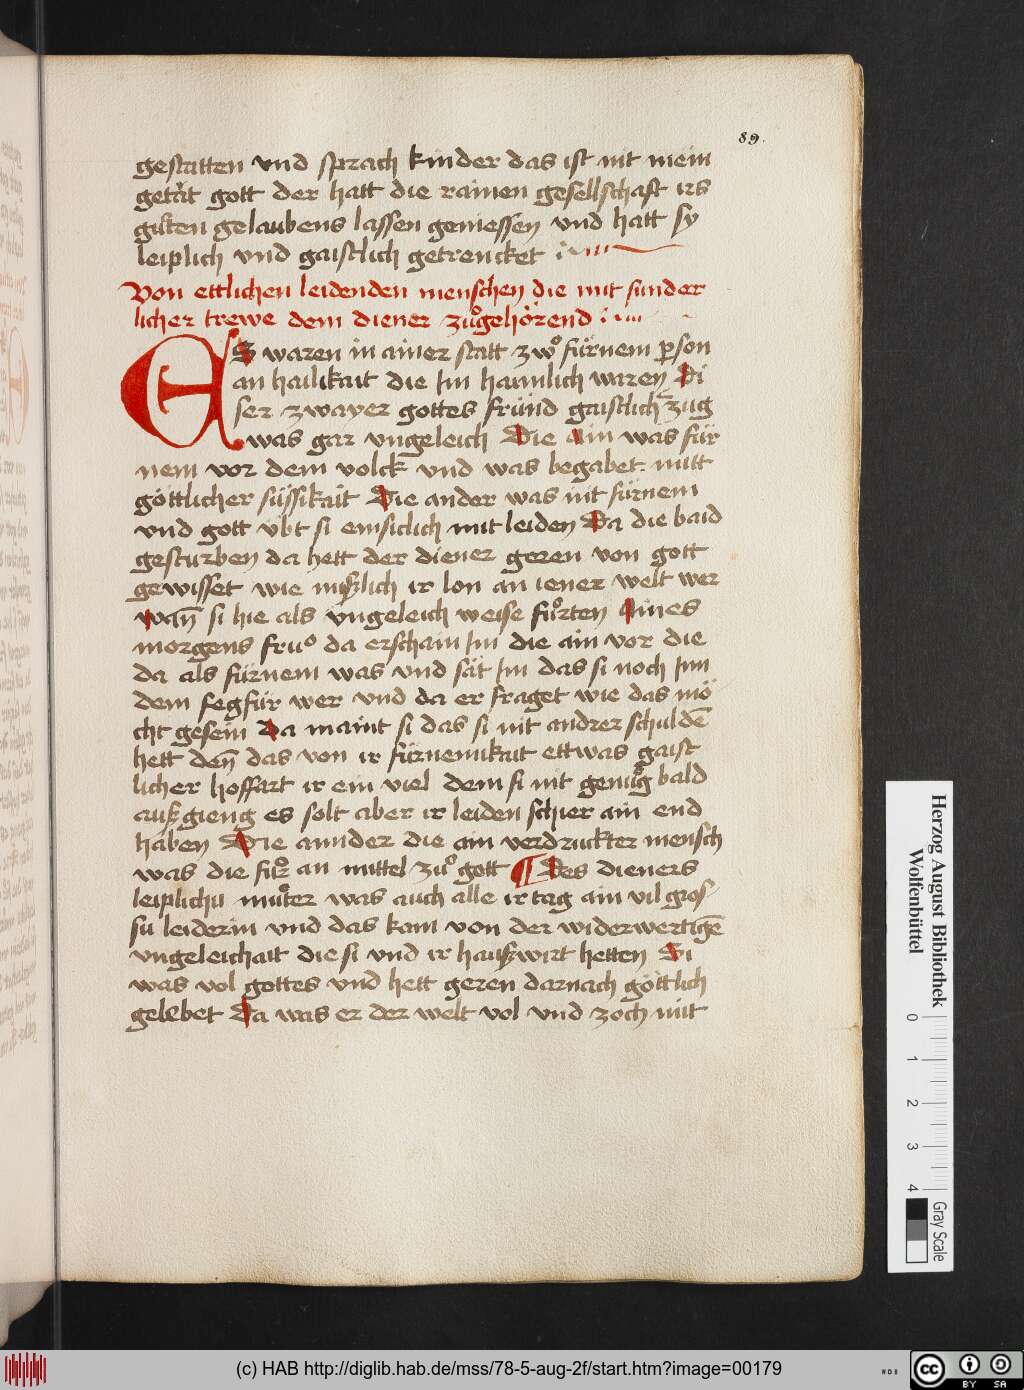 89.
gestatten vnd sprach kinder das ist nit mein
getăt gott der hatt die rainen gesellschaft irs
guten gelaubens lassen geniessen vnd hatt sy
leiplich vnd gaistlich getrencket
Von ettlichen leidenden menschen die mit sunder
licher trewe dem diener zuͦgehörend
ES waren in ainer statt zwoͦ fürnem ꝑson
an hailikait die Im haimlich waren Di
ser zwayer gottes fründ gaistlich zug
was gar vngeleich Die ain was für
nem vor dem volck vnd was begabet mitt
göttlicher süssikait Die ander was nit fürnem
vnd gott übt si emsiclich mit leiden Da die baid
gesturben da hett der diener geren von gott
gewisset wie mißlich ir lon an iener welt wer
wañ si hie als vngeleich weise fuͦrten Aines
morgens fruͦ da erschain Im die ain vor die
da als fürnem was vnd sät Im das si noch Inn
dem fegfür wer vnd da er fraget wie das mö
cht gesein Da maint si das si nit andrer schuldē
hett deñ das von ir fürnemikait ettwas gaist
licher hoffart ir ein viel dem si nit genuͦg bald
außgieng es solt aber ir leiden schier ain end
haben Die annder die ain verdruckter mensch
was die fuͦr an mittel zuͦ gott Des dieners
leiplichu muͦter was auch alle ir tag ain vil gros
su leiderin vnd das kam von der widerwertigē
vngeleichait die si vnd ir haußwirt hetten Si
was vol gottes vnd hett geren darnach göttlich
gelebet Da was er der welt vol vnd zoch mit
Herzog August Bibliothek
Wolfenbüttel
0 1 2 3 4
Gray Scale
(c) HAB http://diglib.hab.de/mss/78-5-aug-2f/start.htm?image=00179
WDB
cc BY SA